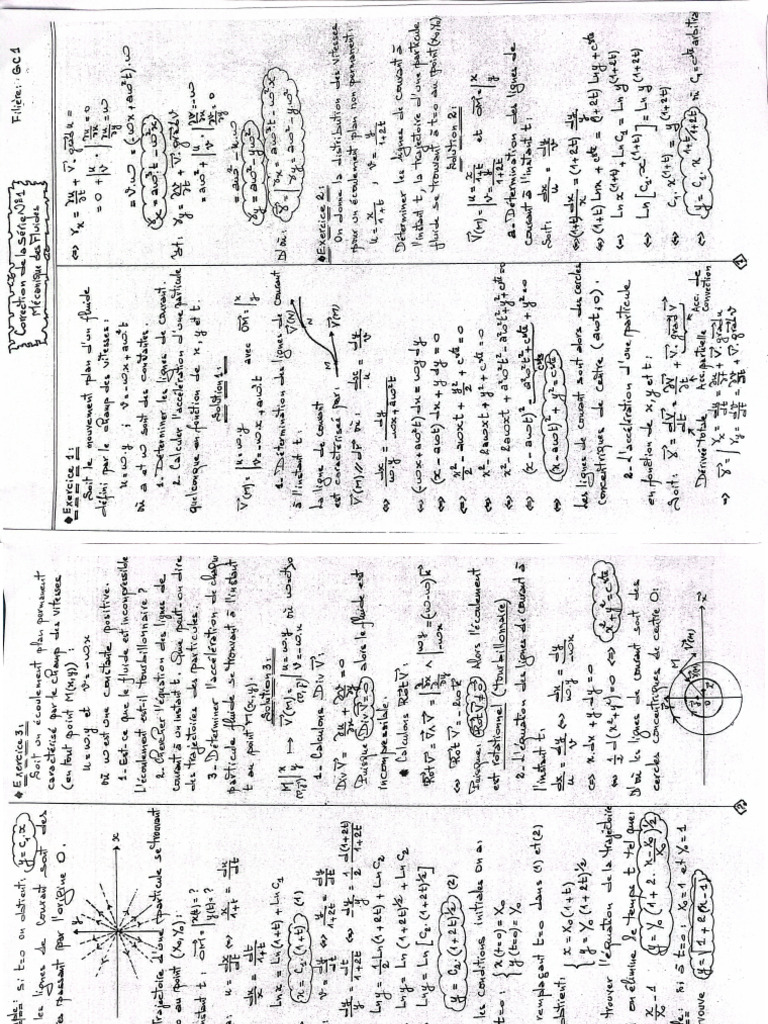 Filière: GC1
Correction de la Série N°1
Mécanique des Fluides
• Exercice 1:
Soit le mouvement plan d'un fluide
défini par le champ des vitesses:
u = ω.y ; v = -ωx + aω²t
où a et ω sont des constantes.
1. Déterminer les lignes de courant.
2. Calculer l'accélération d'une particule
quelconque en fonction de x, y et t.
Solution 1:
V(M) = | u = ω.y
| v = -ωx + aω²t avec OM = | x
| y
1- Détermination des lignes de courant
à l'instant t:
La ligne de courant
est caractérisée par:
V(M) // dr où: dx/u = dy/v
V(M)
N
M
V(M)
⇔ dx/ω.y = dy/-ωx + aω²t
⇔ (-ωx + aω²t) dx = ωy.dy
⇔ (x - aωt) dx + y.dy = 0
⇔ x²/2 - aωxt + y²/2 + cte = 0
⇔ x² - 2aωxt + y² + cte = 0
⇔ x² - 2aωxt + a²ω²t² - a²ω²t² + y² + cte = 0
⇔ (x - aωt)² - a²ω²t² + cte + y² = 0
⇔ (x - aωt)² + y² = cte
Les lignes de courant sont alors des cercles
concentriques de centre (aωt, 0).
2- L'accélération d'une particule
en fonction de x, y et t:
Soit: γ = dV/dt = ∂V/∂t + V.grad V
Dérivée totale Acc. partielle Acc. de convection
⇒ γ = | γx = du/dt = ∂u/∂t + V.grad u
| γy = dv/dt = ∂v/∂t + V.grad v
⇔ γx = ∂u/∂t + V.grad u
= 0 + | u . | ∂u/∂x = 0
| v | ∂u/∂y = ω
= v.ω = (-ωx + aω²t).ω
γx = aω³t - ω²x
γy = ∂v/∂t + V.grad v
= aω² + | u . | ∂v/∂x = -ω
= aω² - u.ω
γy = aω² - yω²
D'où: γ = | γx = aω³t - ω²x
| γy = aω² - yω²
• Exercice 2:
On donne la distribution des vitesses
pour un écoulement plan non permanent:
u = x/1+t ; v = y/1+2t
Déterminer les lignes de courant à
l'instant t, la trajectoire d'une particule
fluide se trouvant à t=0 au point (x₀, y₀)
Solution 2:
V(M) = | u = x/1+t
| v = y/1+2t et OM = | x
| y
a- Détermination des lignes de
courant à l'instant t:
Soit: dx/u = dy/v
⇔ (1+t) dx/x = (1+2t) dy/y
⇔ (1+t) Ln x + cte = (1+2t) Ln y + cte
⇔ Ln x^(1+t) + Ln C₁ = Ln y^(1+2t)
⇔ Ln [C₁.x^(1+t)] = Ln y^(1+2t)
⇔ C₁.x^(1+t) = y^(1+2t)
⇔ y = C₁.x^(1+t/1+2t) où C₁ = cte
1
si t=0 on obtient: y = C₁.x
les lignes de courant sont des
passant par l'origine O.
y
x
Trajectoire d'une particule se trouvant
au point (x₀, y₀):
instant t: OM = | x(t) = ?
| y(t) = ?
u = dx/dt ⇔ x/1+t = dx/dt
dx/x = dt/1+t
Ln x = Ln(1+t) + Ln C₁
x = C₁.(1+t) (1)
v = dy/dt ⇔ y/1+2t = dy/dt
dy/y = dt/1+2t ⇔ dy/y = 1/2 d(1+2t)/1+2t
Ln y = 1/2 Ln(1+2t) + Ln C₂
Ln y = Ln(1+2t)^1/2 + Ln C₂
Ln y = Ln [C₂.(1+2t)^1/2]
y = C₂.(1+2t)^1/2 (2)
les conditions initiales on a:
t=0: { x(t=0) = x₀
{ y(t=0) = y₀
remplaçant t=0 dans (1) et (2)
obtient { x = x₀(1+t)
{ y = y₀(1+2t)^1/2
trouver l'équation de la trajectoire
on élimine le temps t tel que:
x/x₀ - 1 y = y₀(1 + 2.x-x₀/x₀)^1/2
ici à t=0: x₀=1 et y₀=1
y = √1+2(x-1)
• Exercice 3:
Soit un écoulement plan permanent
caractérisé par le champ des vitesses
(en tout point M(x,y)):
u = ωy et v = -ωx
où ω est une constante positive.
1- Est-ce que le fluide est incompressible
l'écoulement est-il tourbillonnaire?
2. Chercher l'équation des lignes de
courant à un instant t. Que peut-on dire
des trajectoires des particules.
3- Déterminer l'accélération de chaque
particule fluide se trouvant à l'instant
t au point M(x,y).
Solution 3:
M | x
| y → V(M) = | u = ω.y
| v = -ω.x où ω=cte>0
1- Calculons Div V:
Div V = ∂u/∂x + ∂v/∂y = 0
Puisque Div V = 0 alors le fluide est
incompressible.
• Calculons Rot V:
Rot V = ∇∧V = | ∂/∂x ∧ | ωy = (-ω-ω)k
| ∂/∂y | -ωx
⇔ Rot V = -2ω k
Puisque: Rot V ≠ 0 Alors l'écoulement
est rotationnel (tourbillonnaire)
2- L'équation des lignes de courant à
l'instant t:
dx/u = dy/v ⇔ dx/ω.y = dy/-ωx
⇔ x.dx + y.dy = 0
⇔ 1/2 d(x²+y²) = 0 ⇔ x²+y² = cte
D'où les lignes de courant sont des
cercles concentriques de centre O:
M
V(M)
x
2